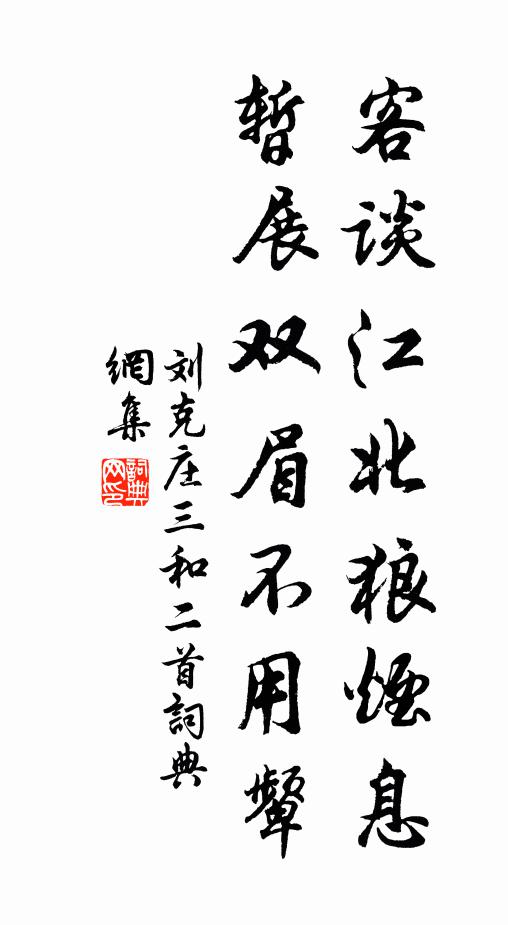 客谈江北狼煙息
暂展双眉不用颦
刘克庄三和二首詞典
網集
詞典
网印